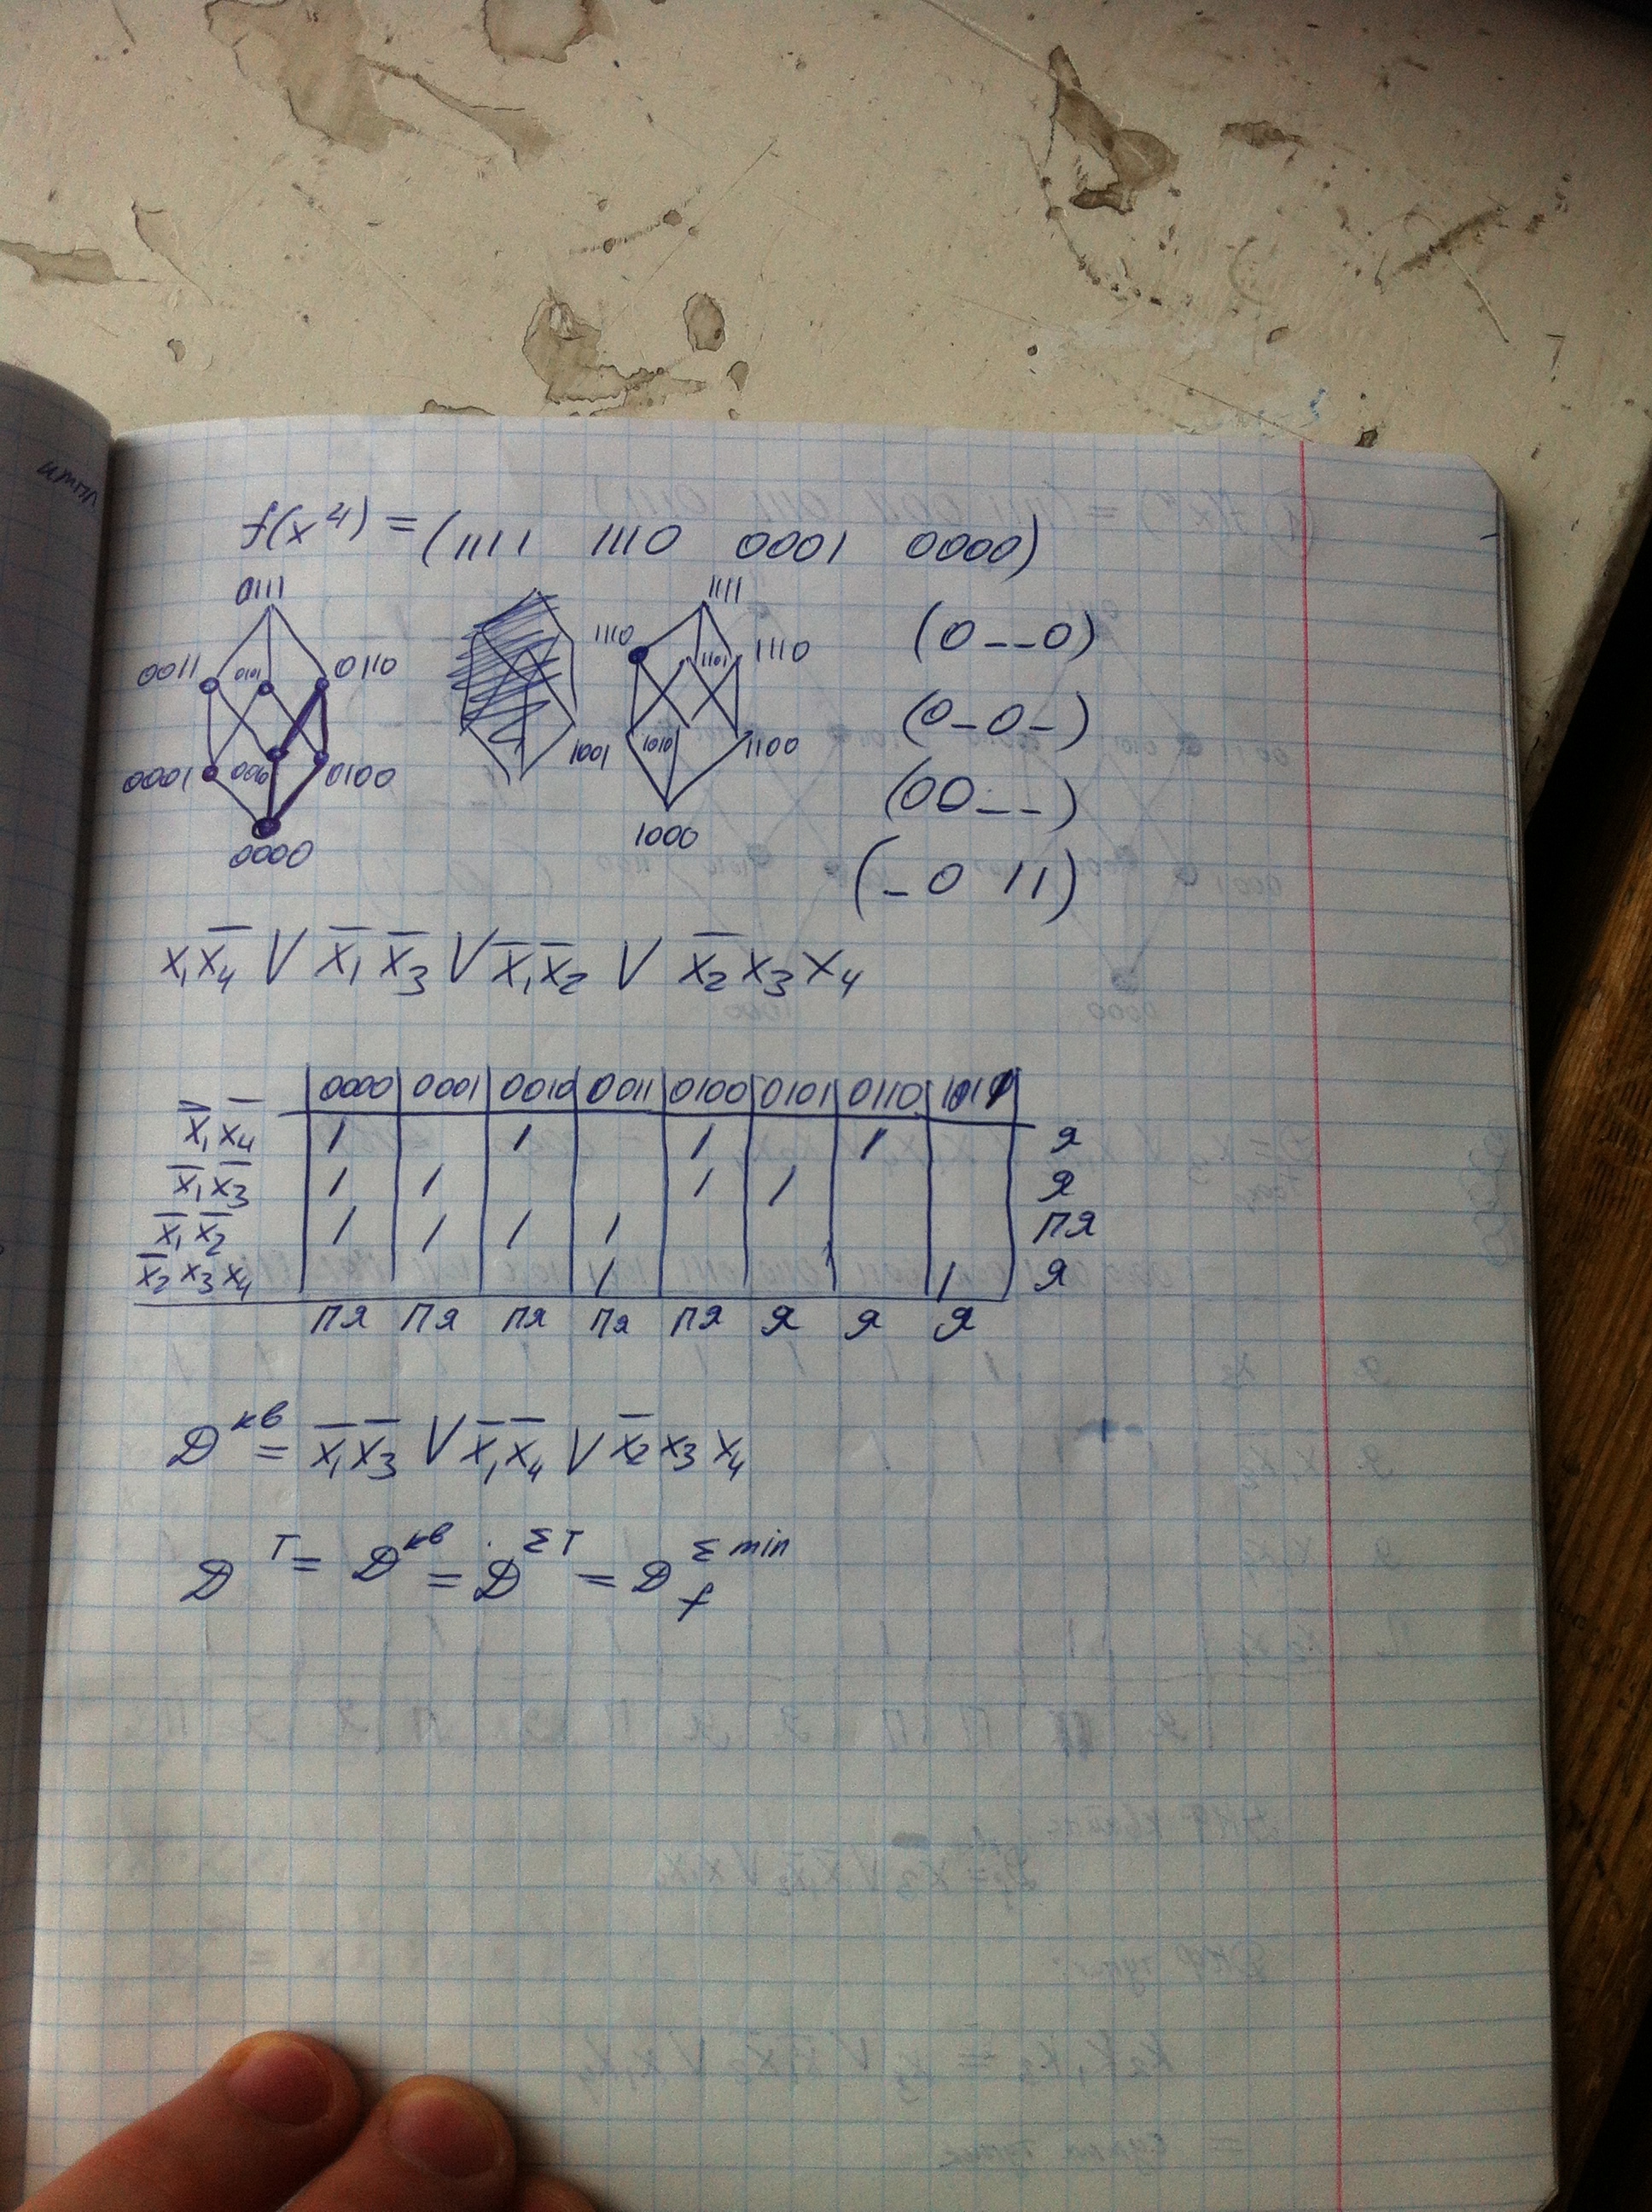 f(x⁴) = (1111 1110 0001 0000)
0111
0011 0101 0110
0001 0010 0100
0000
1111
1110 1101 1110
1001 1010 1100
1000
(0__0)
(0_0_)
(00__)
(_0 11)
x₁x̄₄ V x̄₁ x̄₃ V x̄₁x̄₂ V x̄₂ x₃ x₄
0000 0001 0010 0011 0100 0101 0110 1011
x̄₁ x̄₄ 1 1 1 1 Я
x̄₁ x̄₃ 1 1 1 1 Я
x̄₁ x̄₂ 1 1 1 1 ПЯ
x̄₂ x₃ x₄ 1 1 Я
ПЯ ПЯ ПЯ ПЯ ПЯ Я Я Я
D^кв = x̄₁x̄₃ V x̄₁x̄₄ V x̄₂ x₃ x₄
D^T = D^кв = D^ΣT = D_f^Σmin